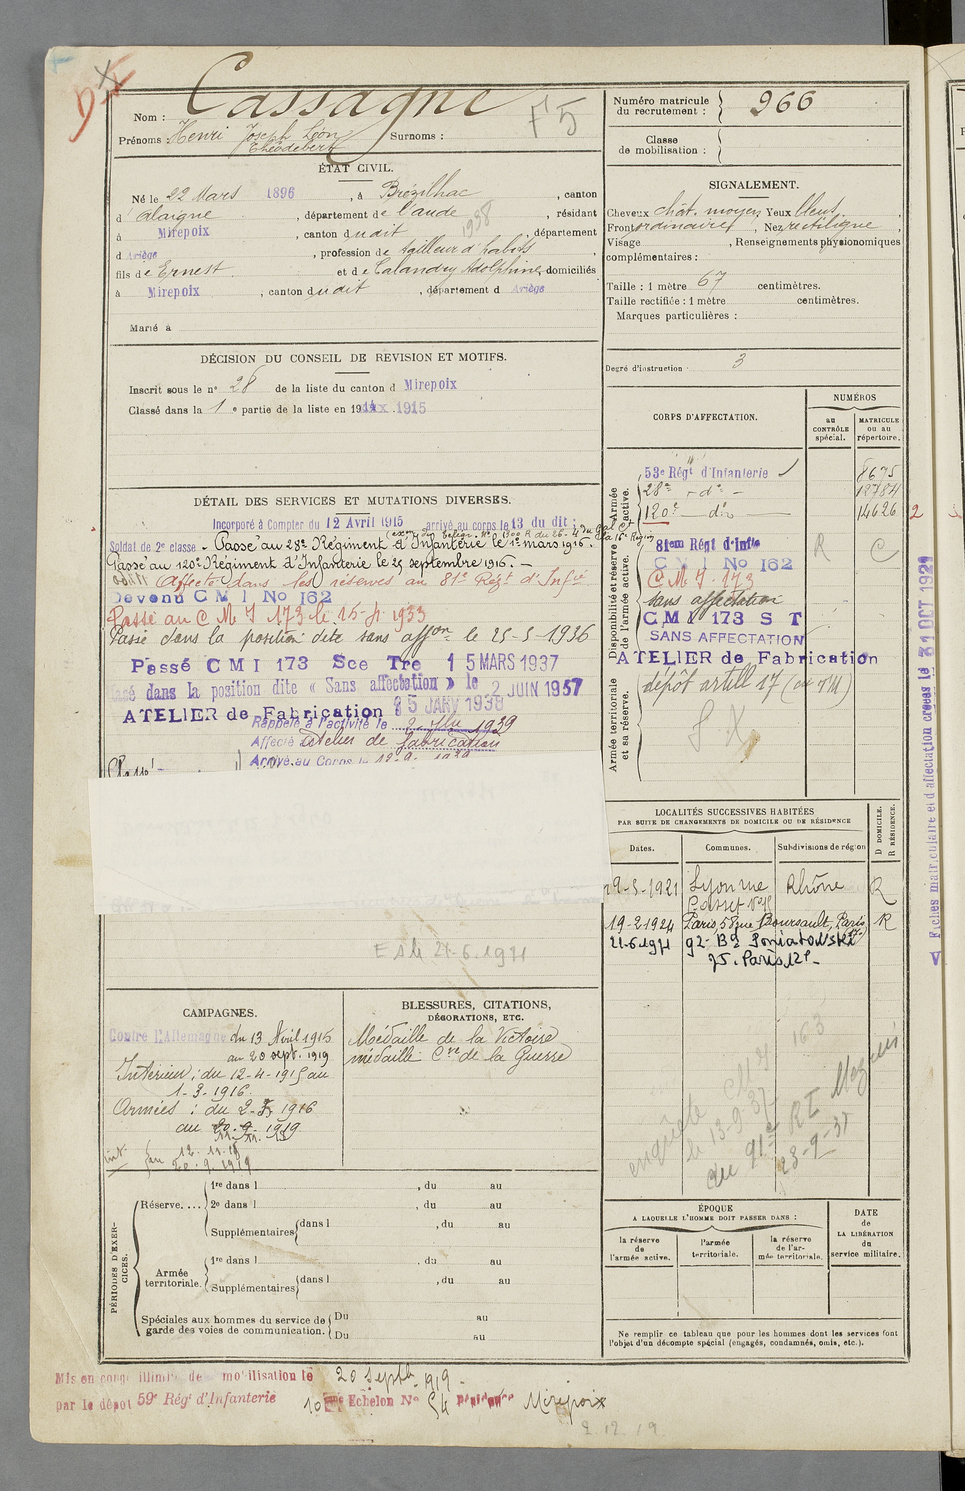 Cassagne
F5
Nom :
Prénoms : Henri Joseph Léon
Théodebert
Surnoms :
ÉTAT CIVIL.
Né le 22 Mars 1896, à Brézilhac, canton
d'Alaigne, département de l'aude, résidant
à Mirepoix, canton dudit, département
d Ariège, profession de tailleur d'habits,
1938
fils de Ernest et de Calandry Adolphine, domiciliés
à Mirepoix, canton dudit, département d Ariège
Marié à
DÉCISION DU CONSEIL DE REVISION ET MOTIFS.
Inscrit sous le n° 28 de la liste du canton d Mirepoix
Classé dans la 1 e partie de la liste en 1915
DÉTAIL DES SERVICES ET MUTATIONS DIVERSES.
Incorporé à Compter du 12 Avril 1915 arrivé au corps le 13 du dit ;
Soldat de 2e classe. Passé au 28e Régiment d'Infanterie le 1er mars 1916.
Passé au 120e Régiment d'Infanterie le 25 septembre 1916. —
Affecté dans les réserves au 81e Régt d'Infie
Devenu C M I No 162
Passé au C M I 173 le 15-4-1933
Passé dans la position dite sans affon le 25-3-1936
Passé C M I 173 Sce Tre 15 MARS 1937
dans la position dite « Sans affectation » le 2 JUIN 1937
ATELIER de Fabrication
Rappelé à l'activité le 1939
Affecté atelier de fabrication
Arrivé au Corps le 12-9-1939
E s le 21.6.1971
CAMPAGNES.
Contre l'Allemagne du 13 Avril 1915
au 20 sept. 1919
Intérieur : du 12-4-1915 au
1-3-1916.
Armées : du 2-3-1916
au 20.9.1919
11. 11. 18
int. au 12.11.18
20.9.1919
BLESSURES, CITATIONS,
DÉCORATIONS, ETC.
Médaille de la Victoire
médaille Cve de la Guerre
PÉRIODES D'EXERCICES.
Réserve....
1re dans l , du au
2e dans l , du au
Supplémentaires dans l , du au
Armée territoriale.
1re dans l , du au
Supplémentaires dans l , du au
Spéciales aux hommes du service de garde des voies de communication.
Du au
Du au
Mis en congé illimité de mobilisation le 20 Septbre 1919.
par le dépot 59e Régt d'Infanterie 10me Echelon No 54 Résidence Mirepoix
2.12.19
Numéro matricule
du recrutement : 966
Classe
de mobilisation :
SIGNALEMENT.
Cheveux chât. moyen Yeux bleus,
Front ordinaire, Nez rectiligne,
Visage , Renseignements physionomiques
complémentaires :
Taille : 1 mètre 67 centimètres.
Taille rectifiée : 1 mètre centimètres.
Marques particulières :
Degré d'instruction : 3
CORPS D'AFFECTATION.
NUMÉROS
au
CONTRÔLE
spécial.
MATRICULE
ou au
répertoire.
Armée active.
53e Régt d'Infanterie 8675
28e — do — 12784
120e — do — 14626
2
Disponibilité et réserve de l'armée active.
81em Régt d'Infie R C
C M I No 162
C M I 173
sans affectation
C M I 173 S T
SANS AFFECTATION
ATELIER de Fabrication
Armée territoriale et sa réserve.
dépôt artill 17
LOCALITÉS SUCCESSIVES HABITÉES
PAR SUITE DE CHANGEMENTS DE DOMICILE OU DE RÉSIDENCE
Dates.
Communes.
Subdivisions de région
D DOMICILE.
R RÉSIDENCE.
Lyon rue Rhône R
19-2-1924 Paris, 58 rue Boursault, Paris R
21-6-1971 92 Bd Poniatowski
75. Paris 12e
enquête CMI 163
le 13-9-37
du 91e RI Mézières
23-9-37
ÉPOQUE
A LAQUELLE L'HOMME DOIT PASSER DANS :
la réserve
de
l'armée active.
l'armée
territoriale.
la réserve
de l'ar-
mée territoriale.
DATE
de
LA LIBÉRATION
du
service militaire.
Ne remplir ce tableau que pour les hommes dont les services font
l'objet d'un décompte spécial (engagés, condamnés, omis, etc.).
V Fiches matriculaire et d'affectation créées le 31 OCT 1929